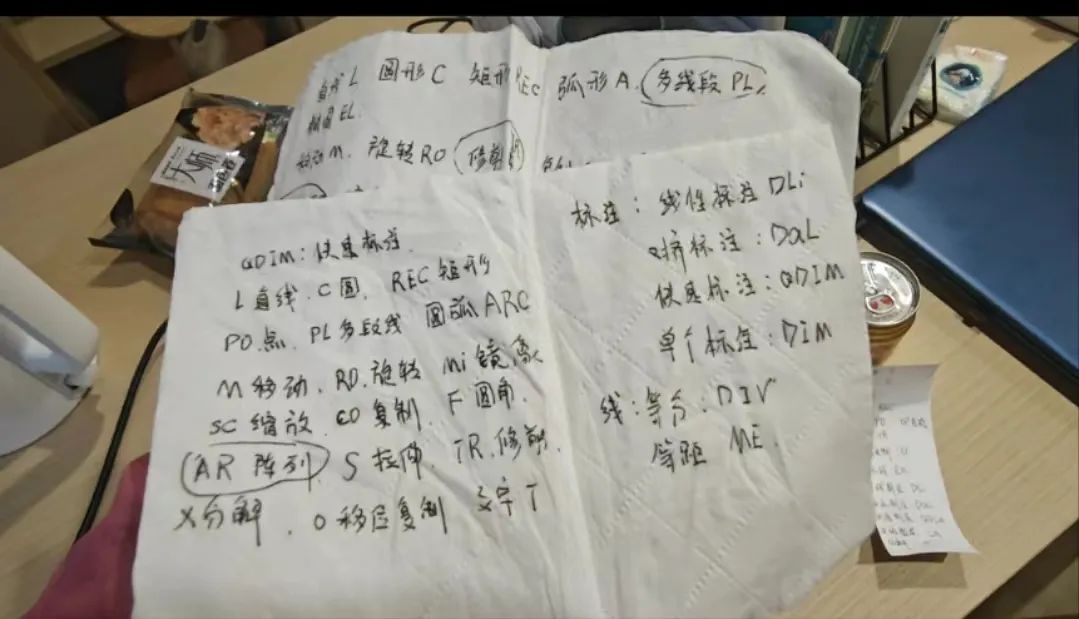 直线 L 圆形 C 矩形 REC 弧形 A. 多线段 PL.
椭圆 EL.
移动 M. 旋转 RO 修剪
QDIM: 快速标注.
L 直线. C 圆. REC 矩形
PO.点. PL 多段线 圆弧 ARC
M 移动. RO.旋转 Mi 镜像
SC 缩放. CO 复制. F 圆角.
AR 阵列. S 拉伸. TR.修剪.
X 分解. O 移位复制 文字 T
标注: 线性标注 DLi
对齐标注: DaL
快速标注: QDIM
单个标注: DIM
线: 等分: DIV
等距 ME.
天师